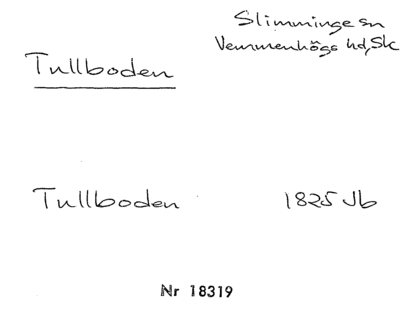 Slimminge sn
Vemmenhögs hd, Sk
Tullboden
Tullboden 1825 Jb
Nr 18319